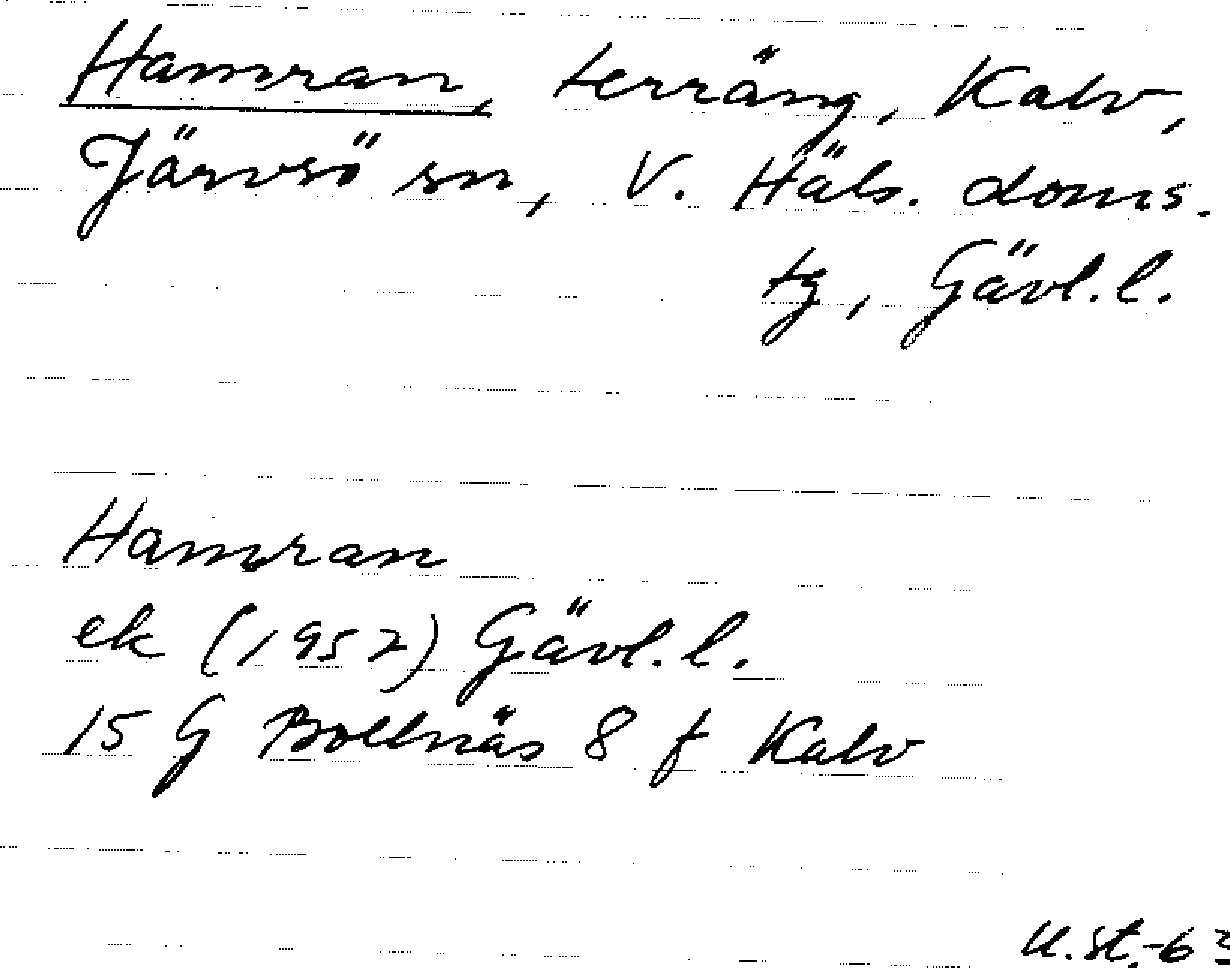 Hamran, terräng, Kalv,
Järvsö sn, V. Häls. doms.
tg, Gävl.l.
Hamran
ek (1952) Gävl.l.
15 G Bollnäs 8 f Kalv
U.st.-63